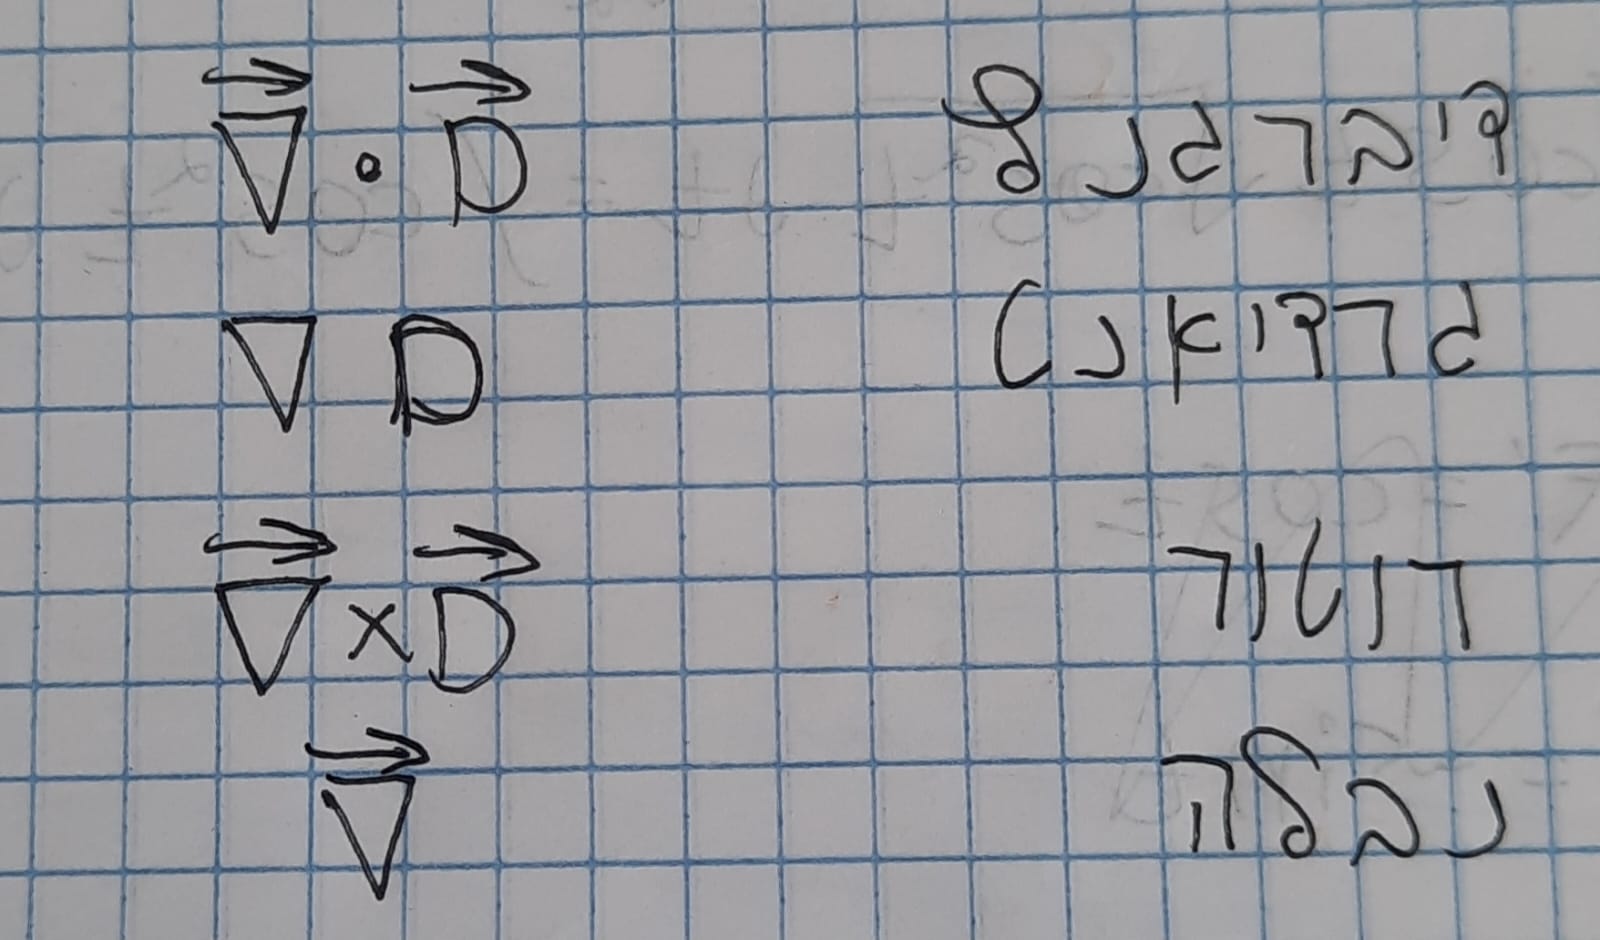 דיברגנץ $\vec{\nabla} \cdot \vec{D}$
גרדיאנט $\nabla D$
רוטור $\vec{\nabla} \times \vec{D}$
נבלה $\vec{\nabla}$